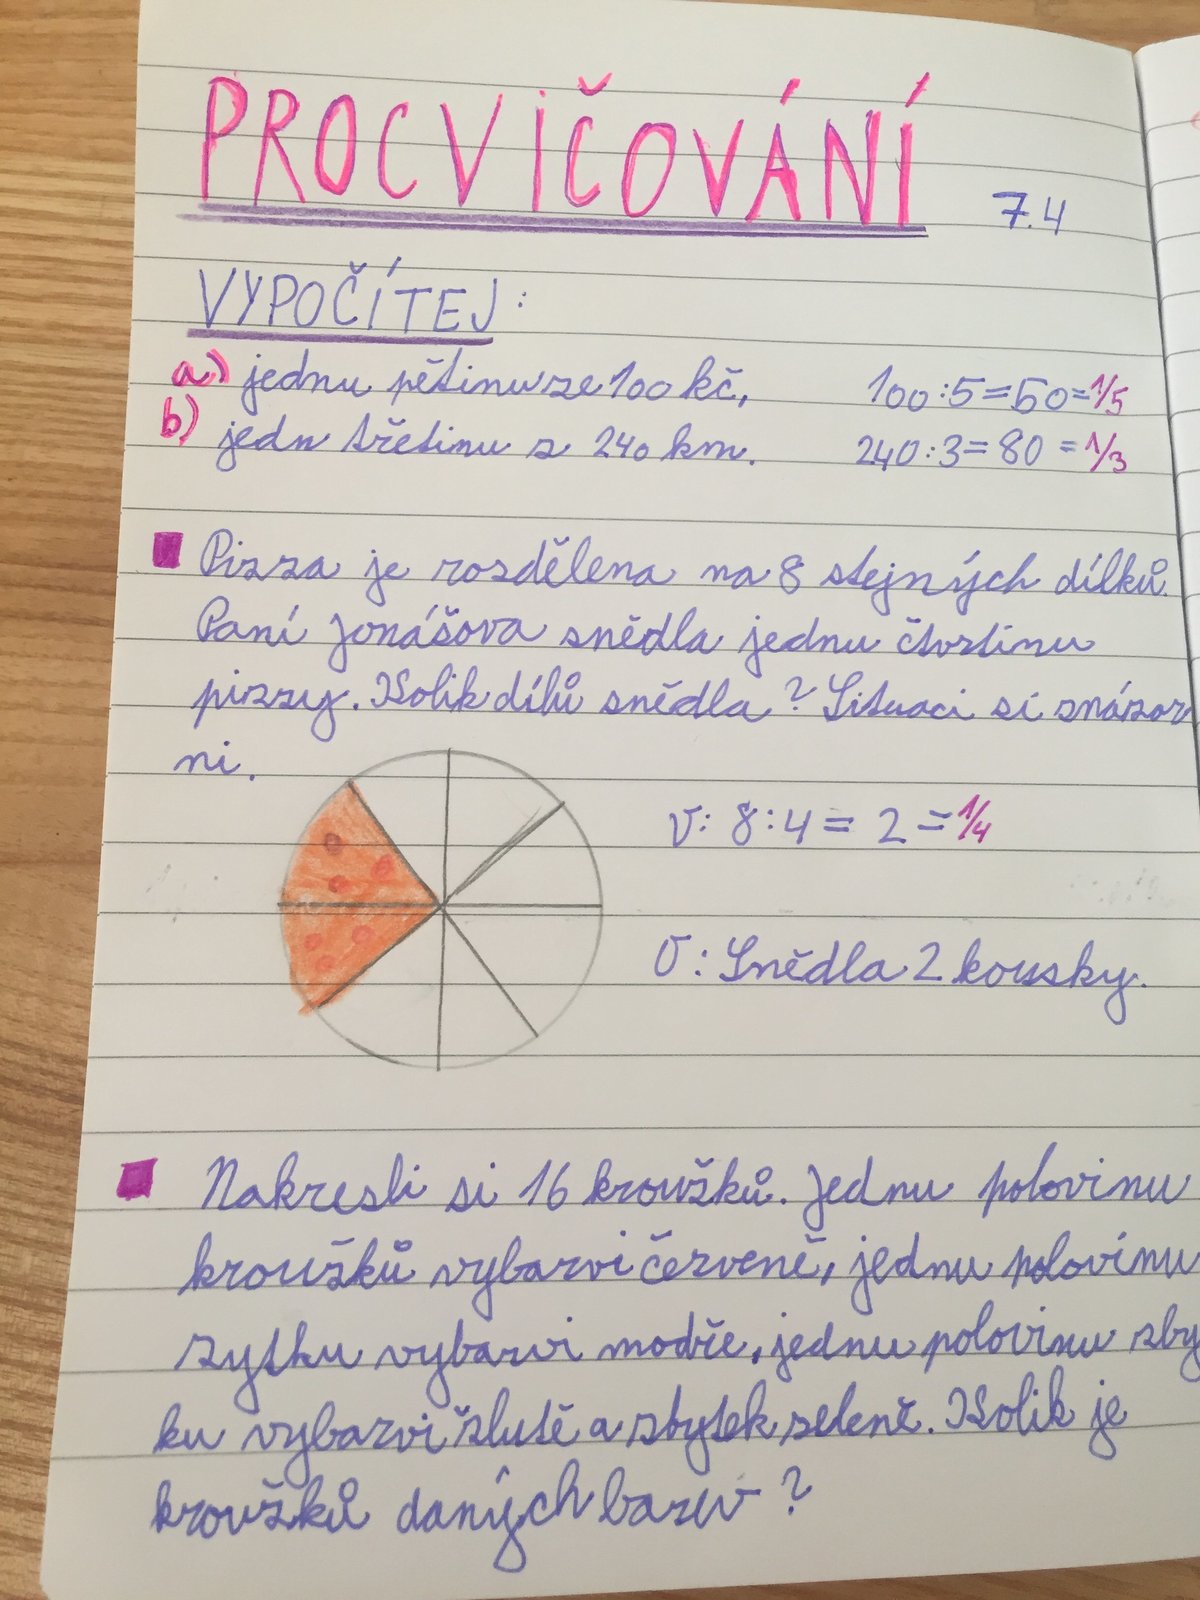 PROCVIČOVÁNÍ
7.4
VYPOČÍTEJ:
a) jednu pětinu ze 100 kč, 100:5=50=1/5
b) jedn třetinu z 240 km. 240:3=80=1/3
Pizza je rozdělena na 8 stejných dílků.
Paní Jonášova snědla jednu čtvrtinu
pizzy. Kolik dílů snědla? Situaci si znázor
ni.
V: 8:4=2=1/4
O: Snědla 2 kousky.
Nakresli si 16 kroužků. Jednu polovinu
kroužků vybarvi červeně, jednu polovinu
zytku vybarvi modře, jednu polovinu zby
ku vybarvi žlutě a zbytek zeleně. Kolik je
kroužků daných barev?